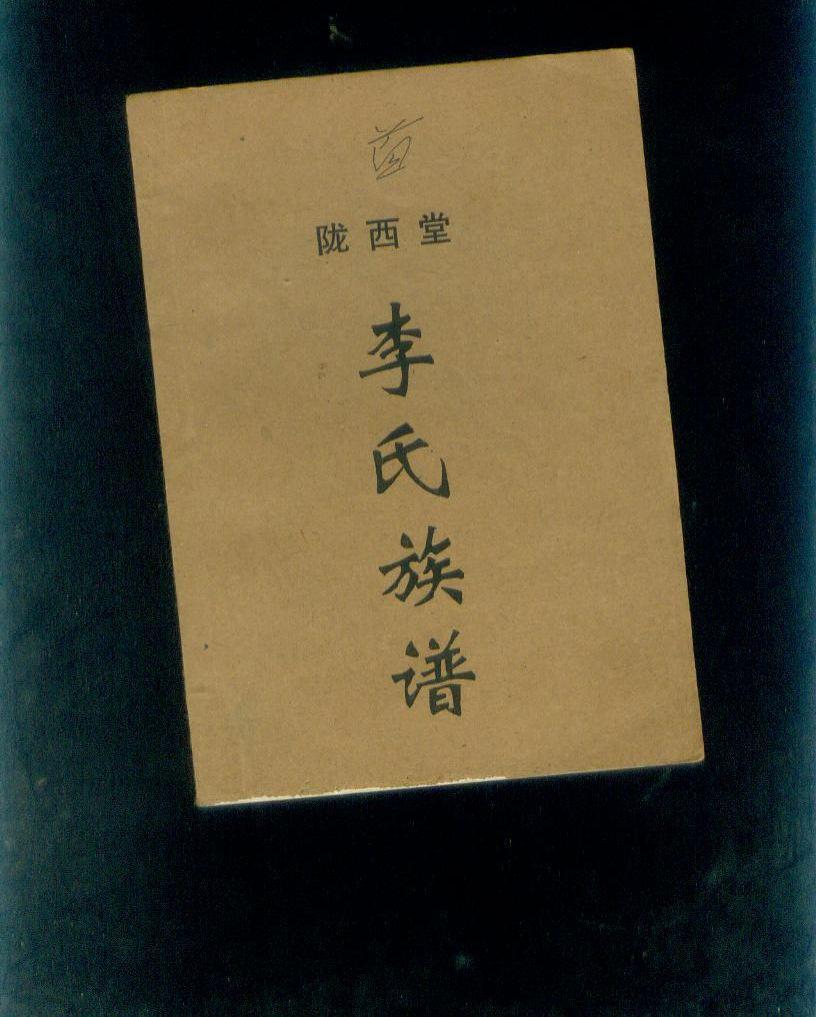 陇西堂
李氏族谱